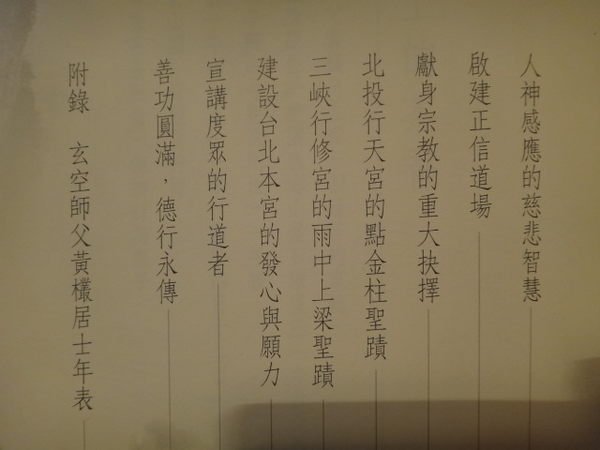 人神感應的慈悲智慧
啟建正信道場
獻身宗教的重大抉擇
北投行天宮的點金柱聖蹟
三峽行修宮的雨中上梁聖蹟
建設台北本宮的發心與願力
宣講度眾的行道者
善功圓滿，德行永傳
附錄　玄空師父黃欉居士年表